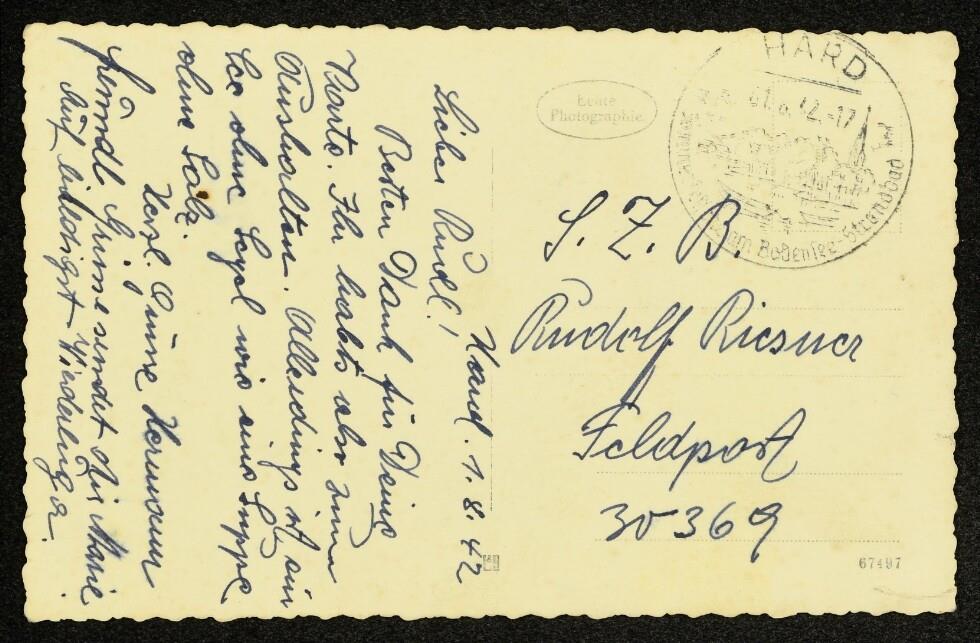 Hard. 1.8.42
Lieber Rudl!
Besten Dank für Deine
Karte. Ihr habts aber zum
Aushalten. Allerdings ist ein
See ohne Segel wie eine Suppe
ohne Salz.
Herzl. Grüsse Hermann
Grüsse sendet Dir Marie.
Auf baldigst Wiederlings
Echte
Photographie
HARD
am Bodensee-Strandbad
S. Z. B.
Rudolf Riesner
Feldpost
30369
67497